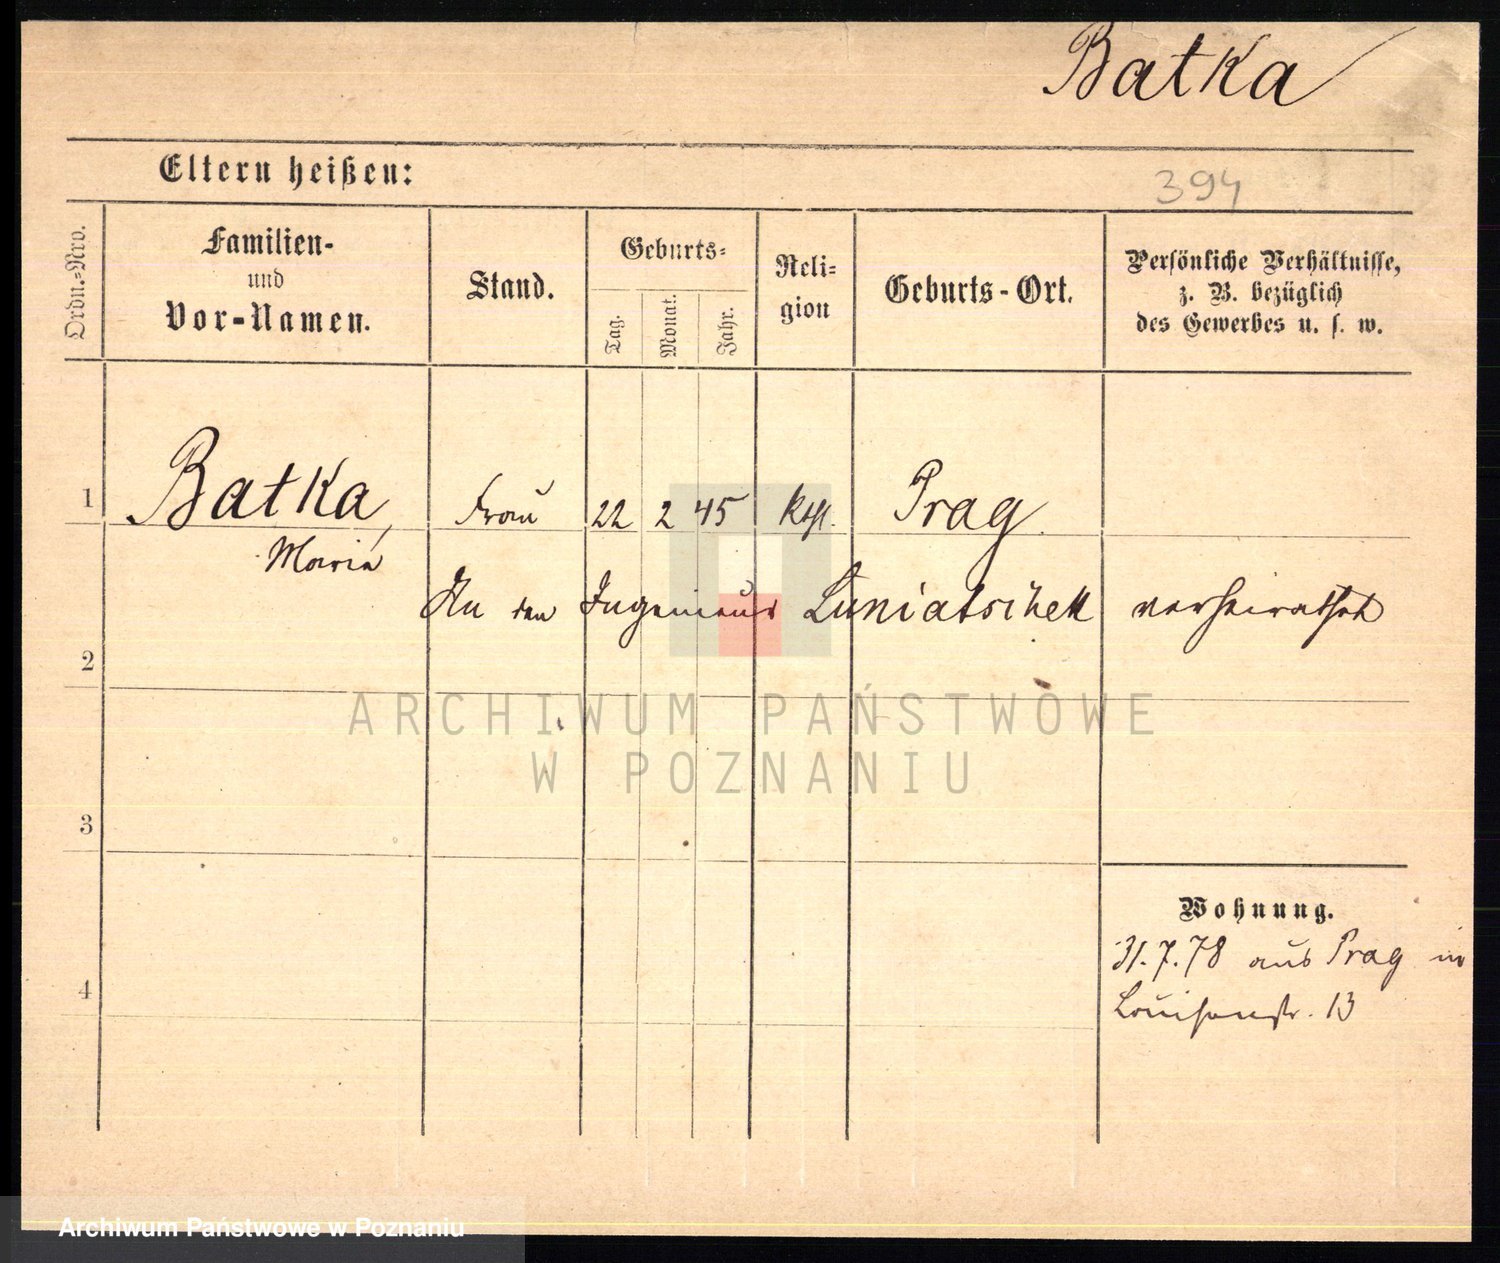 Batka
Eltern heißen:
394
Ordn.-Nro.
Familien-
und
Vor-Namen.
Stand.
Geburts-
Tag.
Monat.
Jahr.
Reli-
gion
Geburts-Ort.
Persönliche Verhältnisse,
z. B. bezüglich
des Gewerbes u. s. w.
1 Batka, Frau 22 2 45 Kthl. Prag
Maria
An den Ingenieur Luniatschek verheirathet
2
ARCHIWUM PAŃSTWOWE
W POZNANIU
3
Wohnung.
31.7.78 aus Prag in
4
Louisenstr. 13
Archiwum Państwowe w Poznaniu